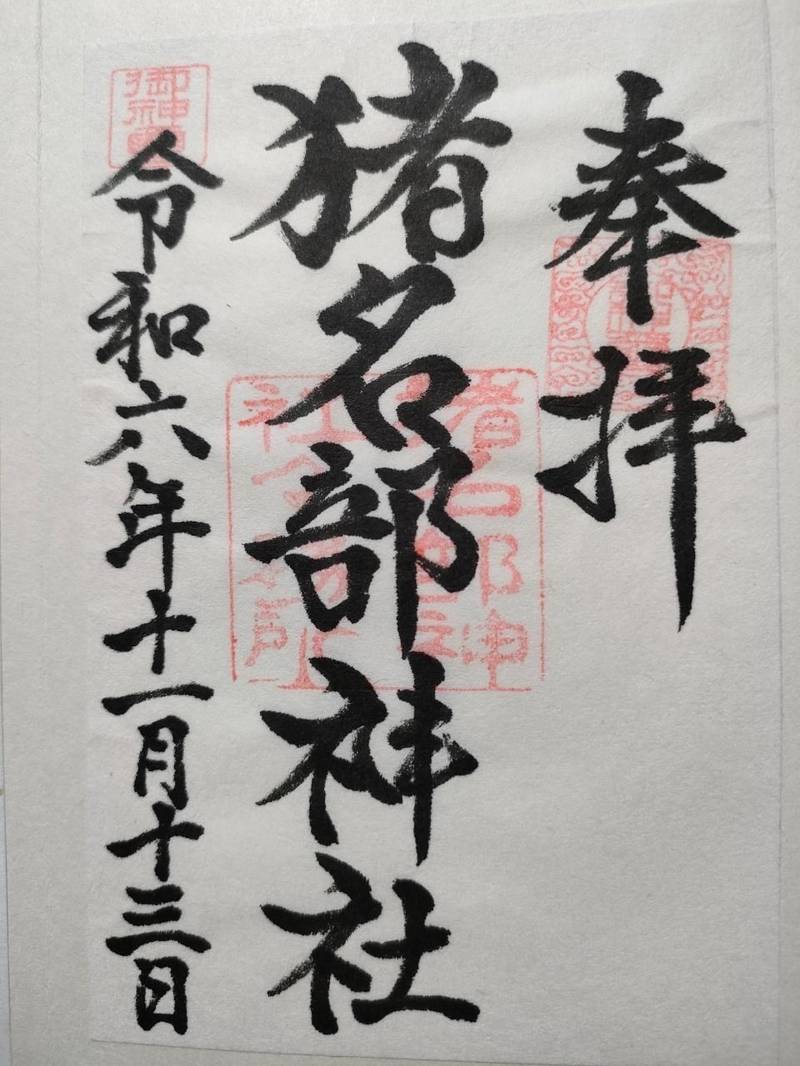 奉拝
猪名部神社
令和六年十一月十三日
猪名部神